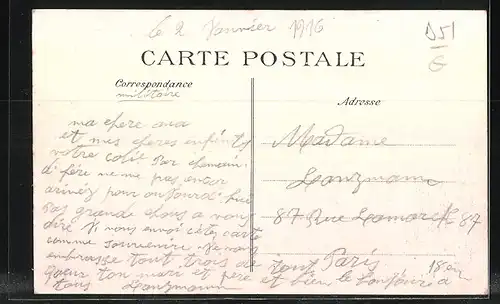 le 2 Janvier 1916
D51
G
CARTE POSTALE
Correspondance
militaire
Adresse
ma chere
et mes cheres enfents
votre colis Par chemain
d' fére ne me pas encor
arivéz pour
Pas grande chous a vous
dire Je vous cete carte
comme souvenire Je vous
embrasse tout trois de
queur ton mari et pere et bien le bonjour a
tous Lanzmann
Madame
Lanzmann
87 Rue Lamarck 87
Paris
18em